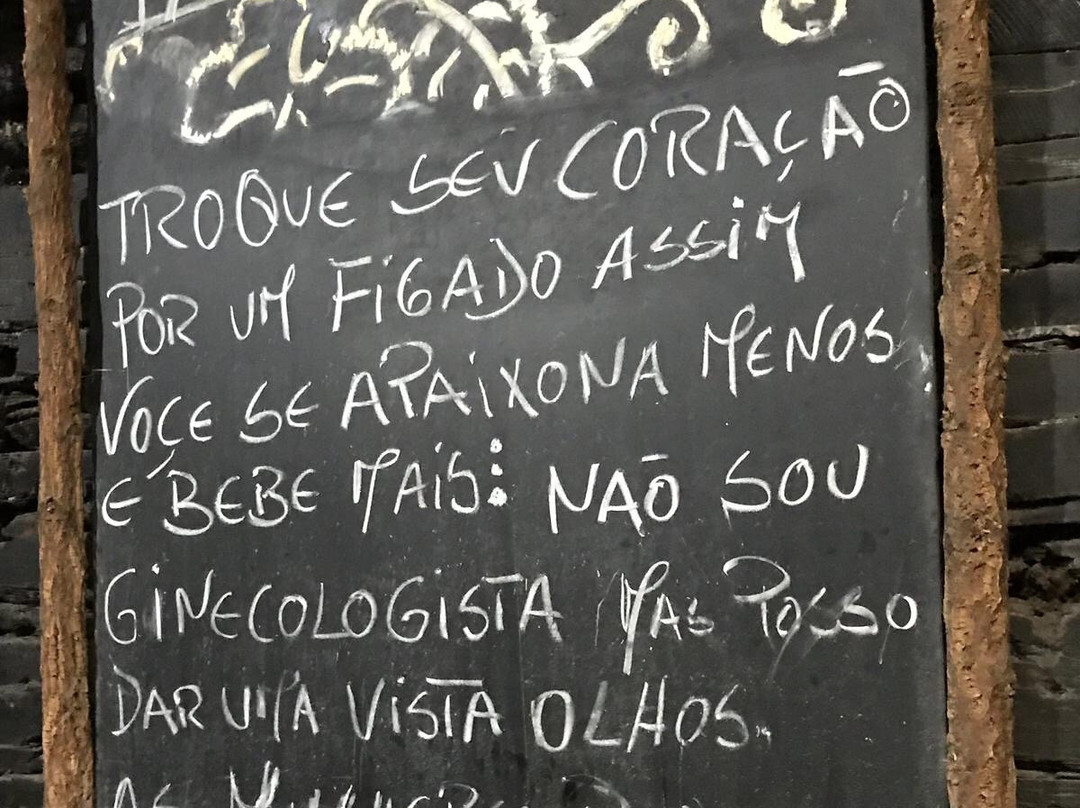 TROQUE SEU CORAÇÃO
POR UM FiGADO ASSiM
VOÇE SE APAiXONA MENOS
E BEBE MAiS: NÃO SOU
GiNECOLOGiSTA MAS POSSO
DAR UMA ViSTA OLHOS.
AS